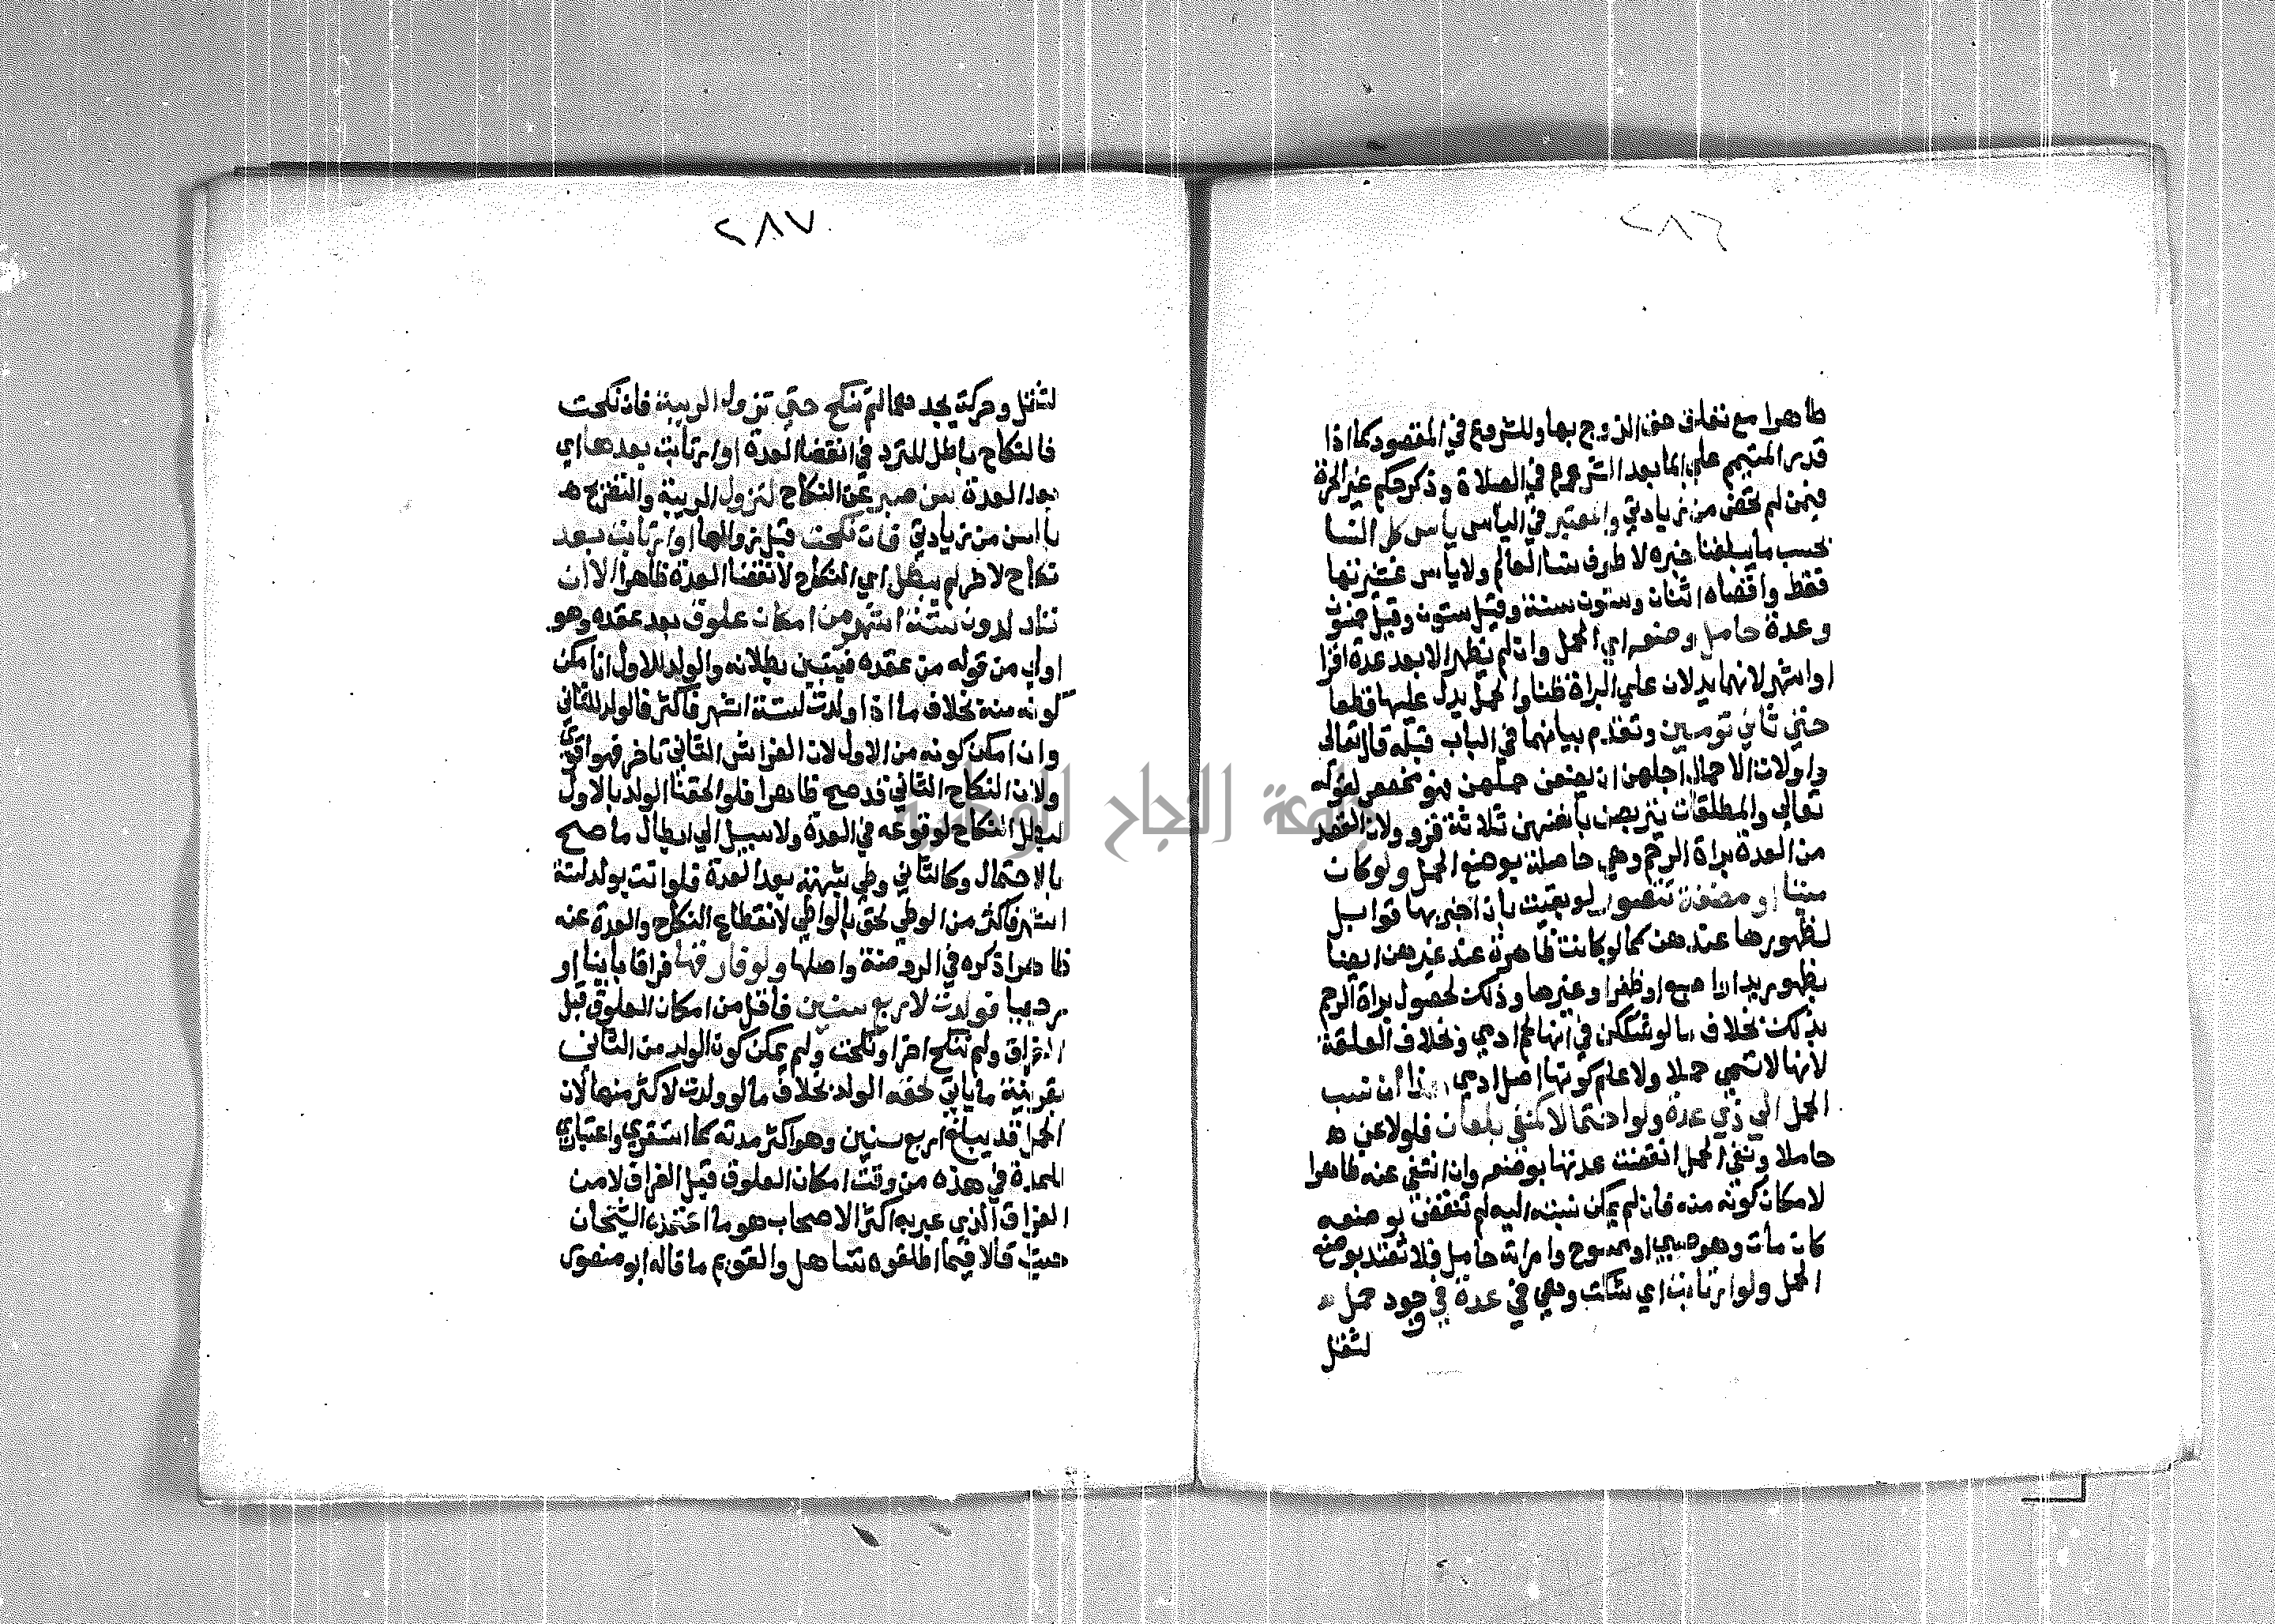 ٢٨٦
ظاهرا مع تعلق حق الزوج بها وللشروع في المقصود كما اذا
قدر المتيمم علي الما بعد الشروع في الصلاة وذكر حكم غير الحرة
فيمن لم تحض من زيادتي والمعتبر في الياس ياس كل النسا
بحسب ما يبلغنا خبره لا طوف نسا العالم ولا ياس عشيرتها
فقط واقصاه اثنان وستون سنة وقيل ستون وقيل خمسون
وعدة حامل وضعه اي الحمل وان لم يظهر الا بعد عدة اقرا
او اشهر لانهما يدلان علي البراة ظنا والحمل يدل عليها قطعا
حتي ثاني تومين وتقدم بيانهما في الباب قبله قال تعالى
واولات الاحمال اجلهن ان يضعن حملهن فهو مخصص لقوله
تعالي والمطلقات يتربصن بانفسهن ثلاثة قرو ولان القصد
من العدة براة الرحم وهي حاصلة بوضع الحمل ولو كان
ميتا او مضغة تتصور لو بقيت بان اخبر بها قوابل
لظهورها عندهن كما لو كانت ظاهرة عند غيرهن ايضا
بظهور يد او اصبع او ظفر او غيرها وذلك لحصول براة الرحم
بذلك بخلاف ما لو شككن في انها لحم ادمي وبخلاف العلقة
لانها لا تسمي حملا ولا علم كونها اصل ادمي هذا ان نسب
الحمل الي ذي عدة ولو احتمالا كمنفي بلعان فلو لاعن
حاملا ونفي الحمل انقضت عدتها بوضعه وان انتفى عنه ظاهرا
لامكان كونه منه فان لم يمكن نسبته اليه لم تنقض بوضعه
كان مات وهو صبي او ممسوح وامراته حامل فلا تعتد بوضع
الحمل ولو ارتابت اي شكت وهي في عدة في وجود حمل
لثقل
٢٨٧
لثقل وحركة تجدهما لم تنكح حتي تزول الريبة فان نكحت
فالنكاح باطل للتردد في انقضا العدة او ارتابت بعدها اي
بعد العدة سن صبر عن النكاح لتزول الريبة والتصريح
بالسن من زيادتي فان نكحت قبل زوالها او ارتابت بعد
نكاح لاخر لم يبطل اي النكاح لانقضا العدة ظاهرا الا ان
تلد لدون ستة اشهر من امكان علوق بعد عقده وهو
اولي من قوله من عقده فيتبين بطلانه والولد للاول ان امكن
كونه منه بخلاف ما اذا ولدت لستة اشهر فاكثر فالولد للثاني
وان امكن كونه من الاول لان الفراش الثاني تاخر فهو اقوي
ولان النكاح الثاني قد صح ظاهرا فلو الحقنا الولد بالاول
لبطل النكاح لوقوعه في العدة ولا سبيل الي ابطال ما صح
بالاحتمال وكالثاني وطي بشبهة بعد العدة فلو اتت بولد لستة
اشهر فاكثر من الوطي لحق بالواطي لانقطاع النكاح والعدة عنه
ظاهرا ذكره في الروضة واصلها ولو فارقها فراقا باينا او
رجعيا فولدت لاربع سنين فاقل من امكان العلوق قبل
الفراق ولم تنكح اخر او نكحت ولم يمكن كون الولد من الثاني
بقرينة ما ياتي لحقه الولد بخلاف ما لو ولدت لاكثر منها لان
الحمل قد يبلغ اربع سنين وهو اكثر مدته كما استقري واعتباري
المدة في هذه من وقت امكان العلوق قبل الفراق لا من
الفراق الذي عبر به اكثر الاصحاب هو ما اعتمده الشيخان
حيث قالا فيما اطلقوه تساهل والقويم ما قاله ابو منصور
جامعة النجاح الوطنية